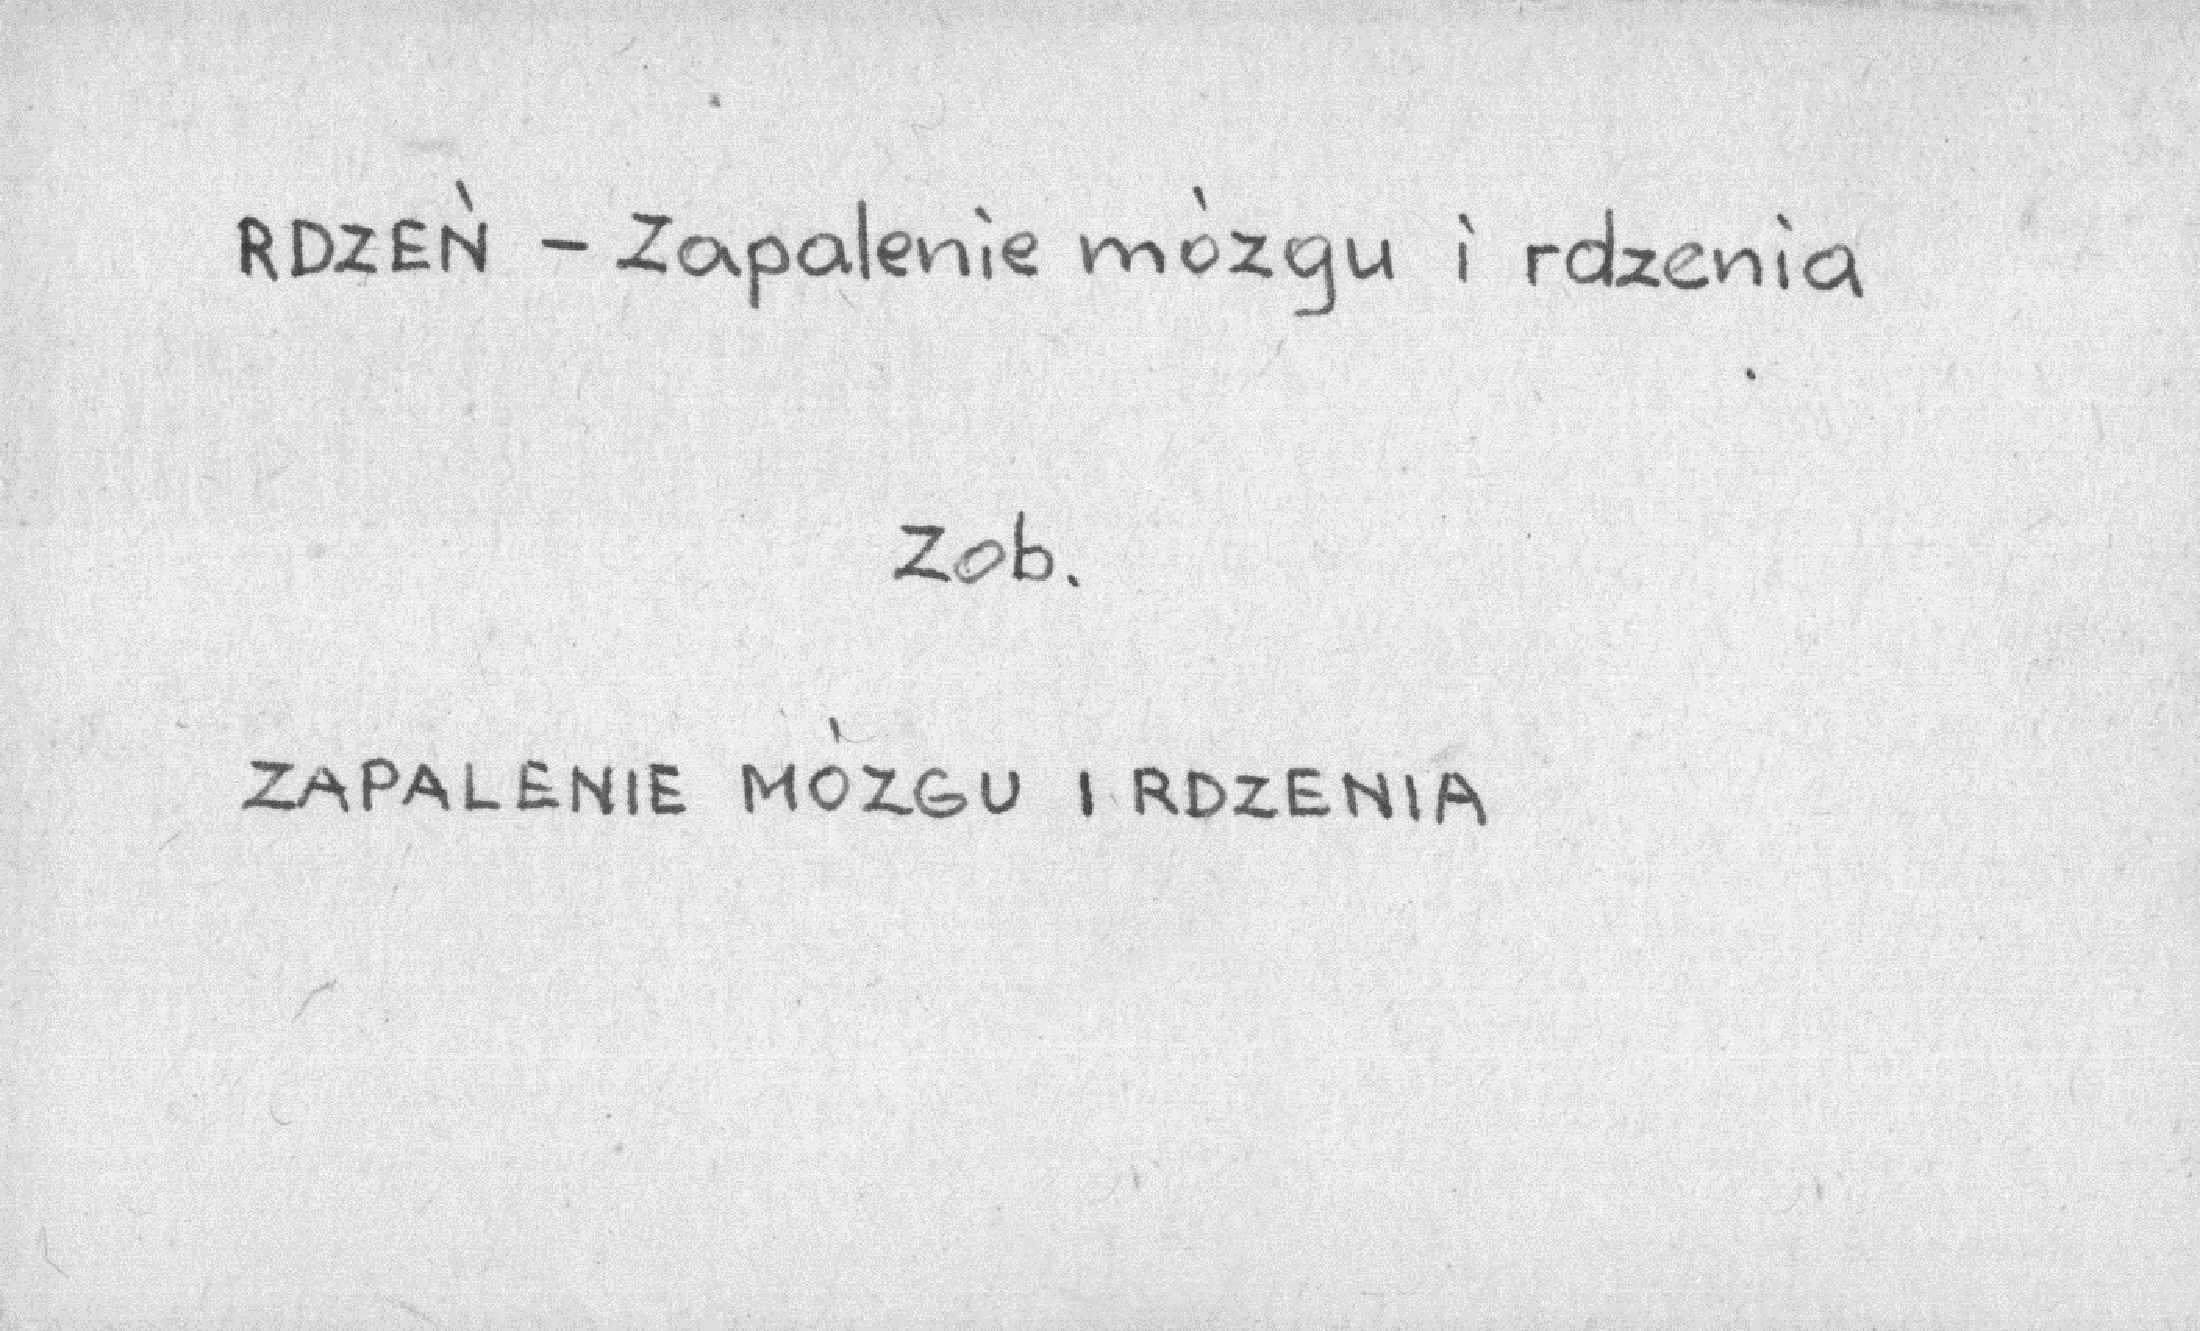 RDZEŃ - Zapalenie mózgu i rdzenia
Zob.
ZAPALENIE MÓZGU I RDZENIA